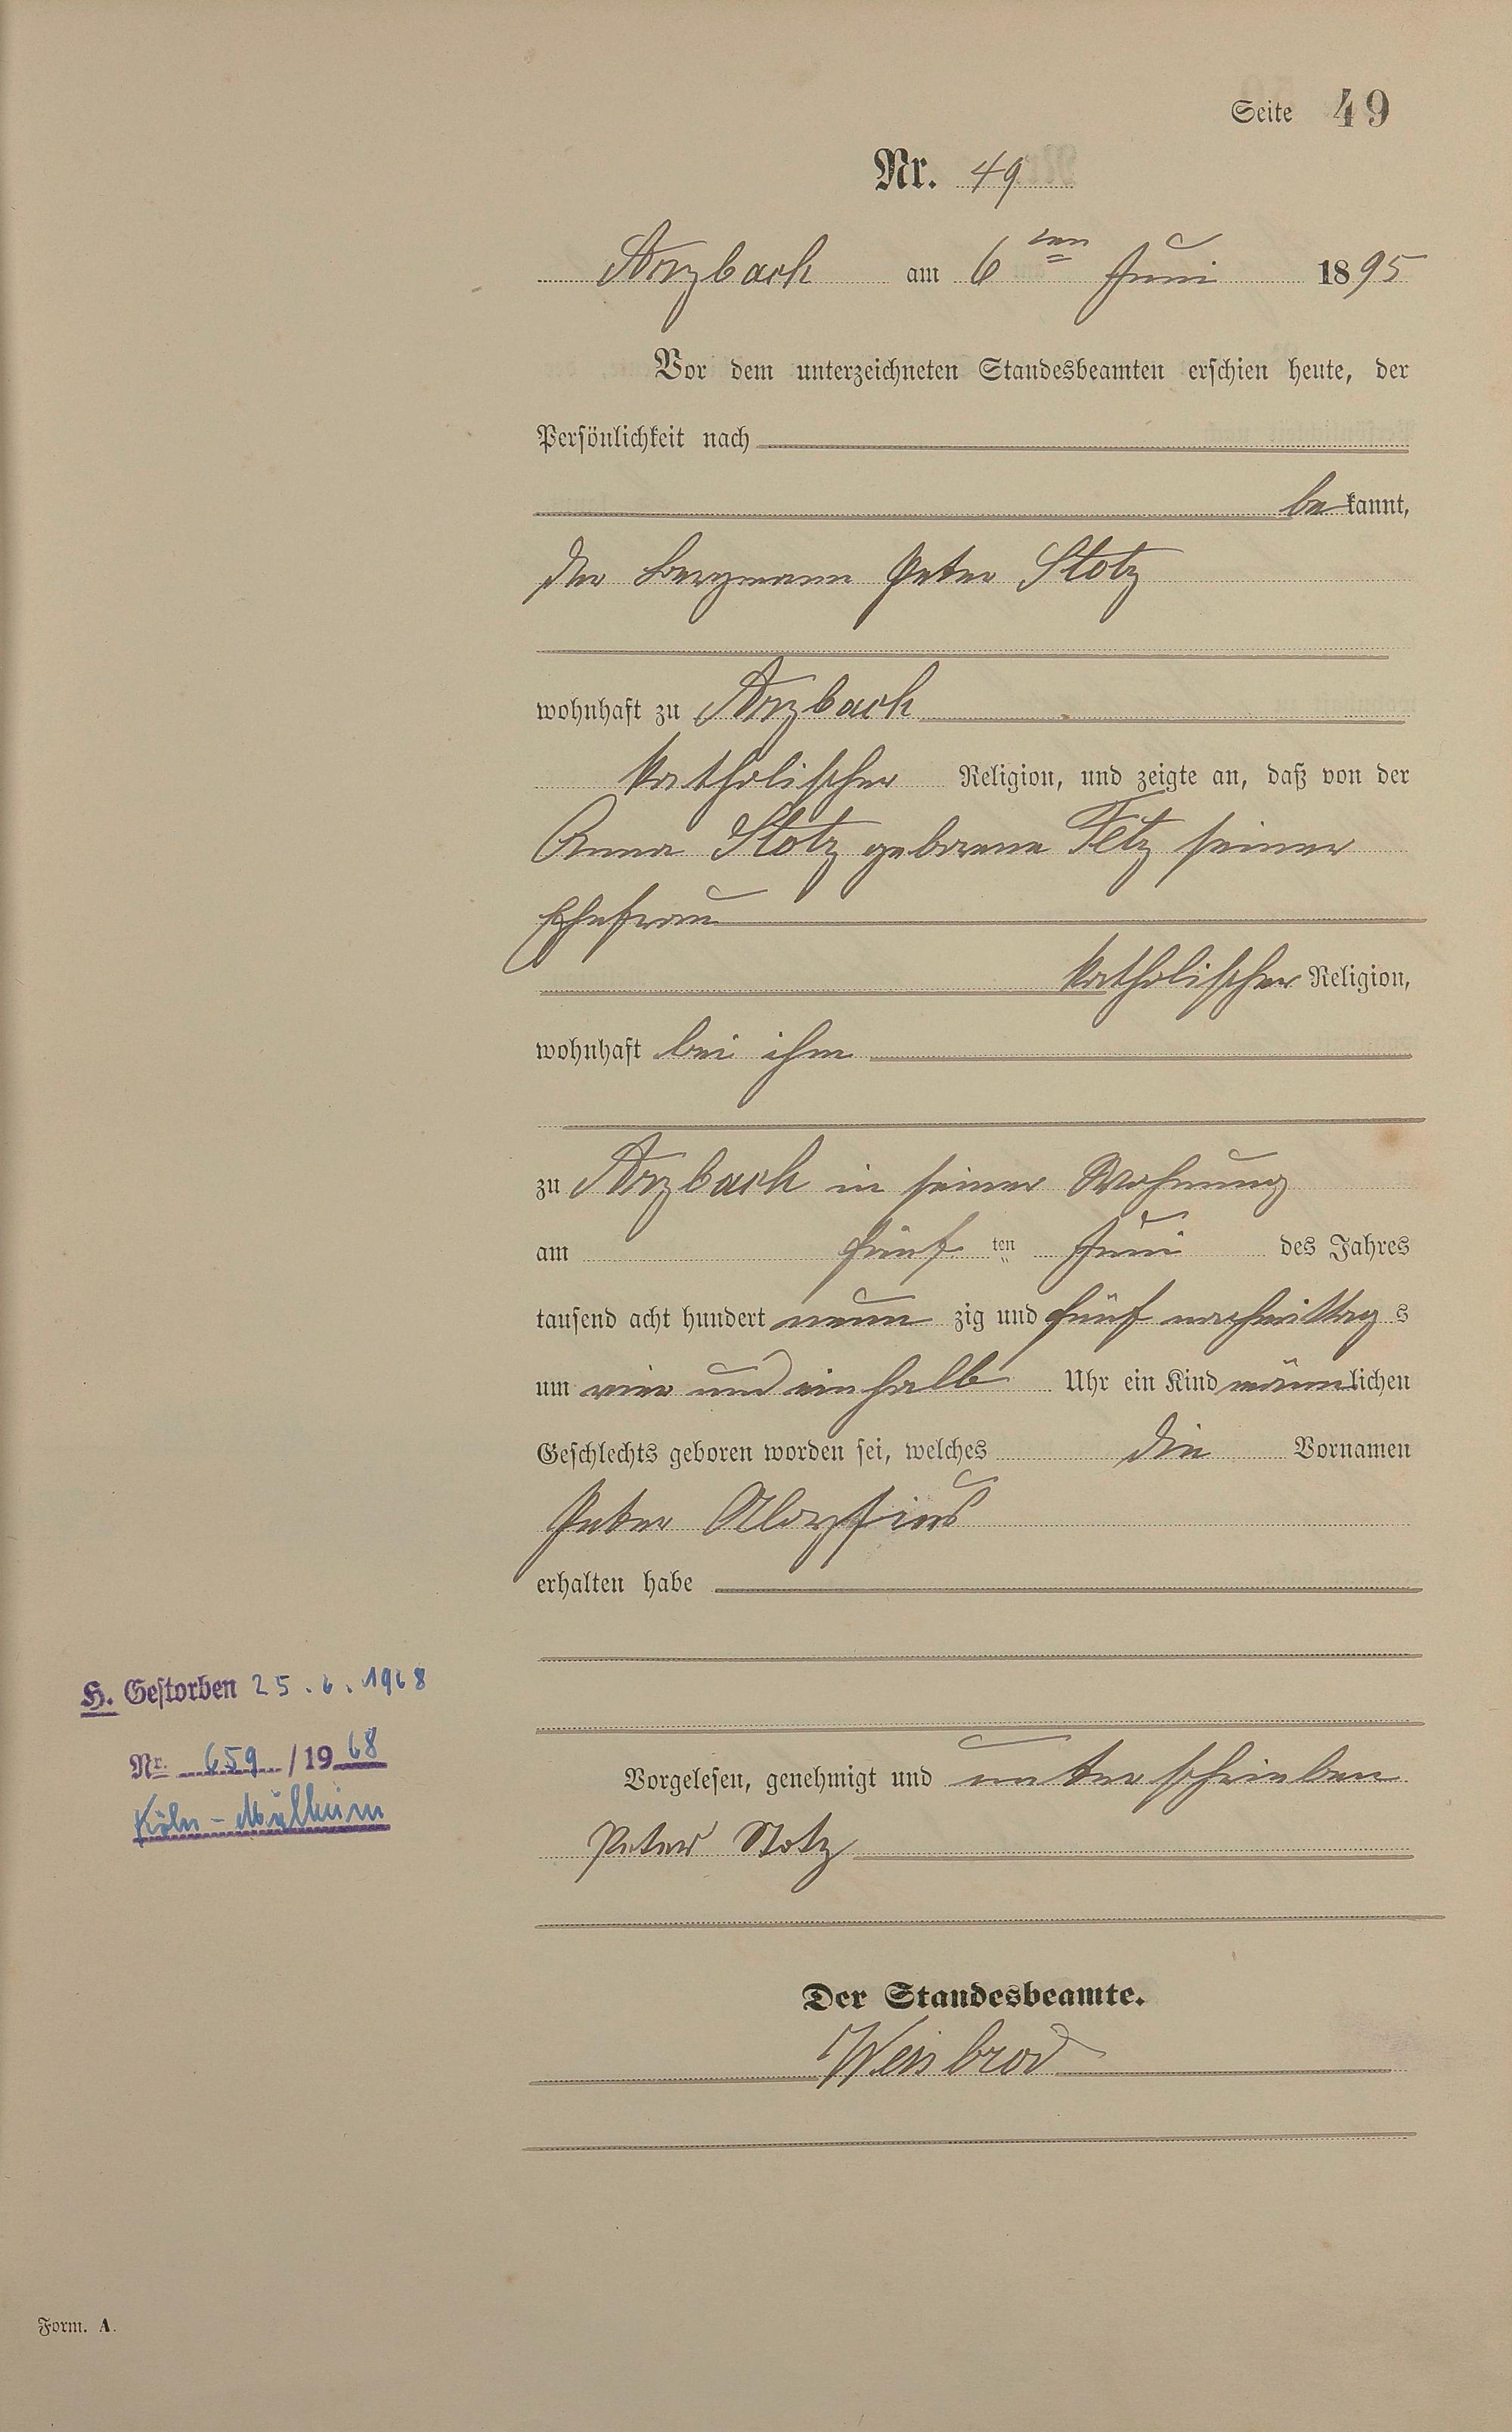 Seite 49
Nr. 49
Arzbach am 6ten Juni 1895
Vor dem unterzeichneten Standesbeamten erschien heute, der
Persönlichkeit nach
bekannt,
der Bergmann Peter Stotz
wohnhaft zu Arzbach
katholischer Religion, und zeigte an, daß von der
Anna Stotz geborene Fetz seiner
Ehefrau
katholischer Religion,
wohnhaft bei ihm
zu Arzbach in seiner Wohnung
am fünf ten Juni des Jahres
tausend acht hundert neun zig und fünf nachmittag s
um vier und ein halb Uhr ein Kind männlichen
Geschlechts geboren worden sei, welches die Vornamen
Peter Aloysius
erhalten habe
H. Gestorben 25.6.1968
Nr. 659/1968
Köln-Mülheim
Vorgelesen, genehmigt und unterschrieben
Peter Stotz
Der Standesbeamte.
Weisbrod
Form. A.